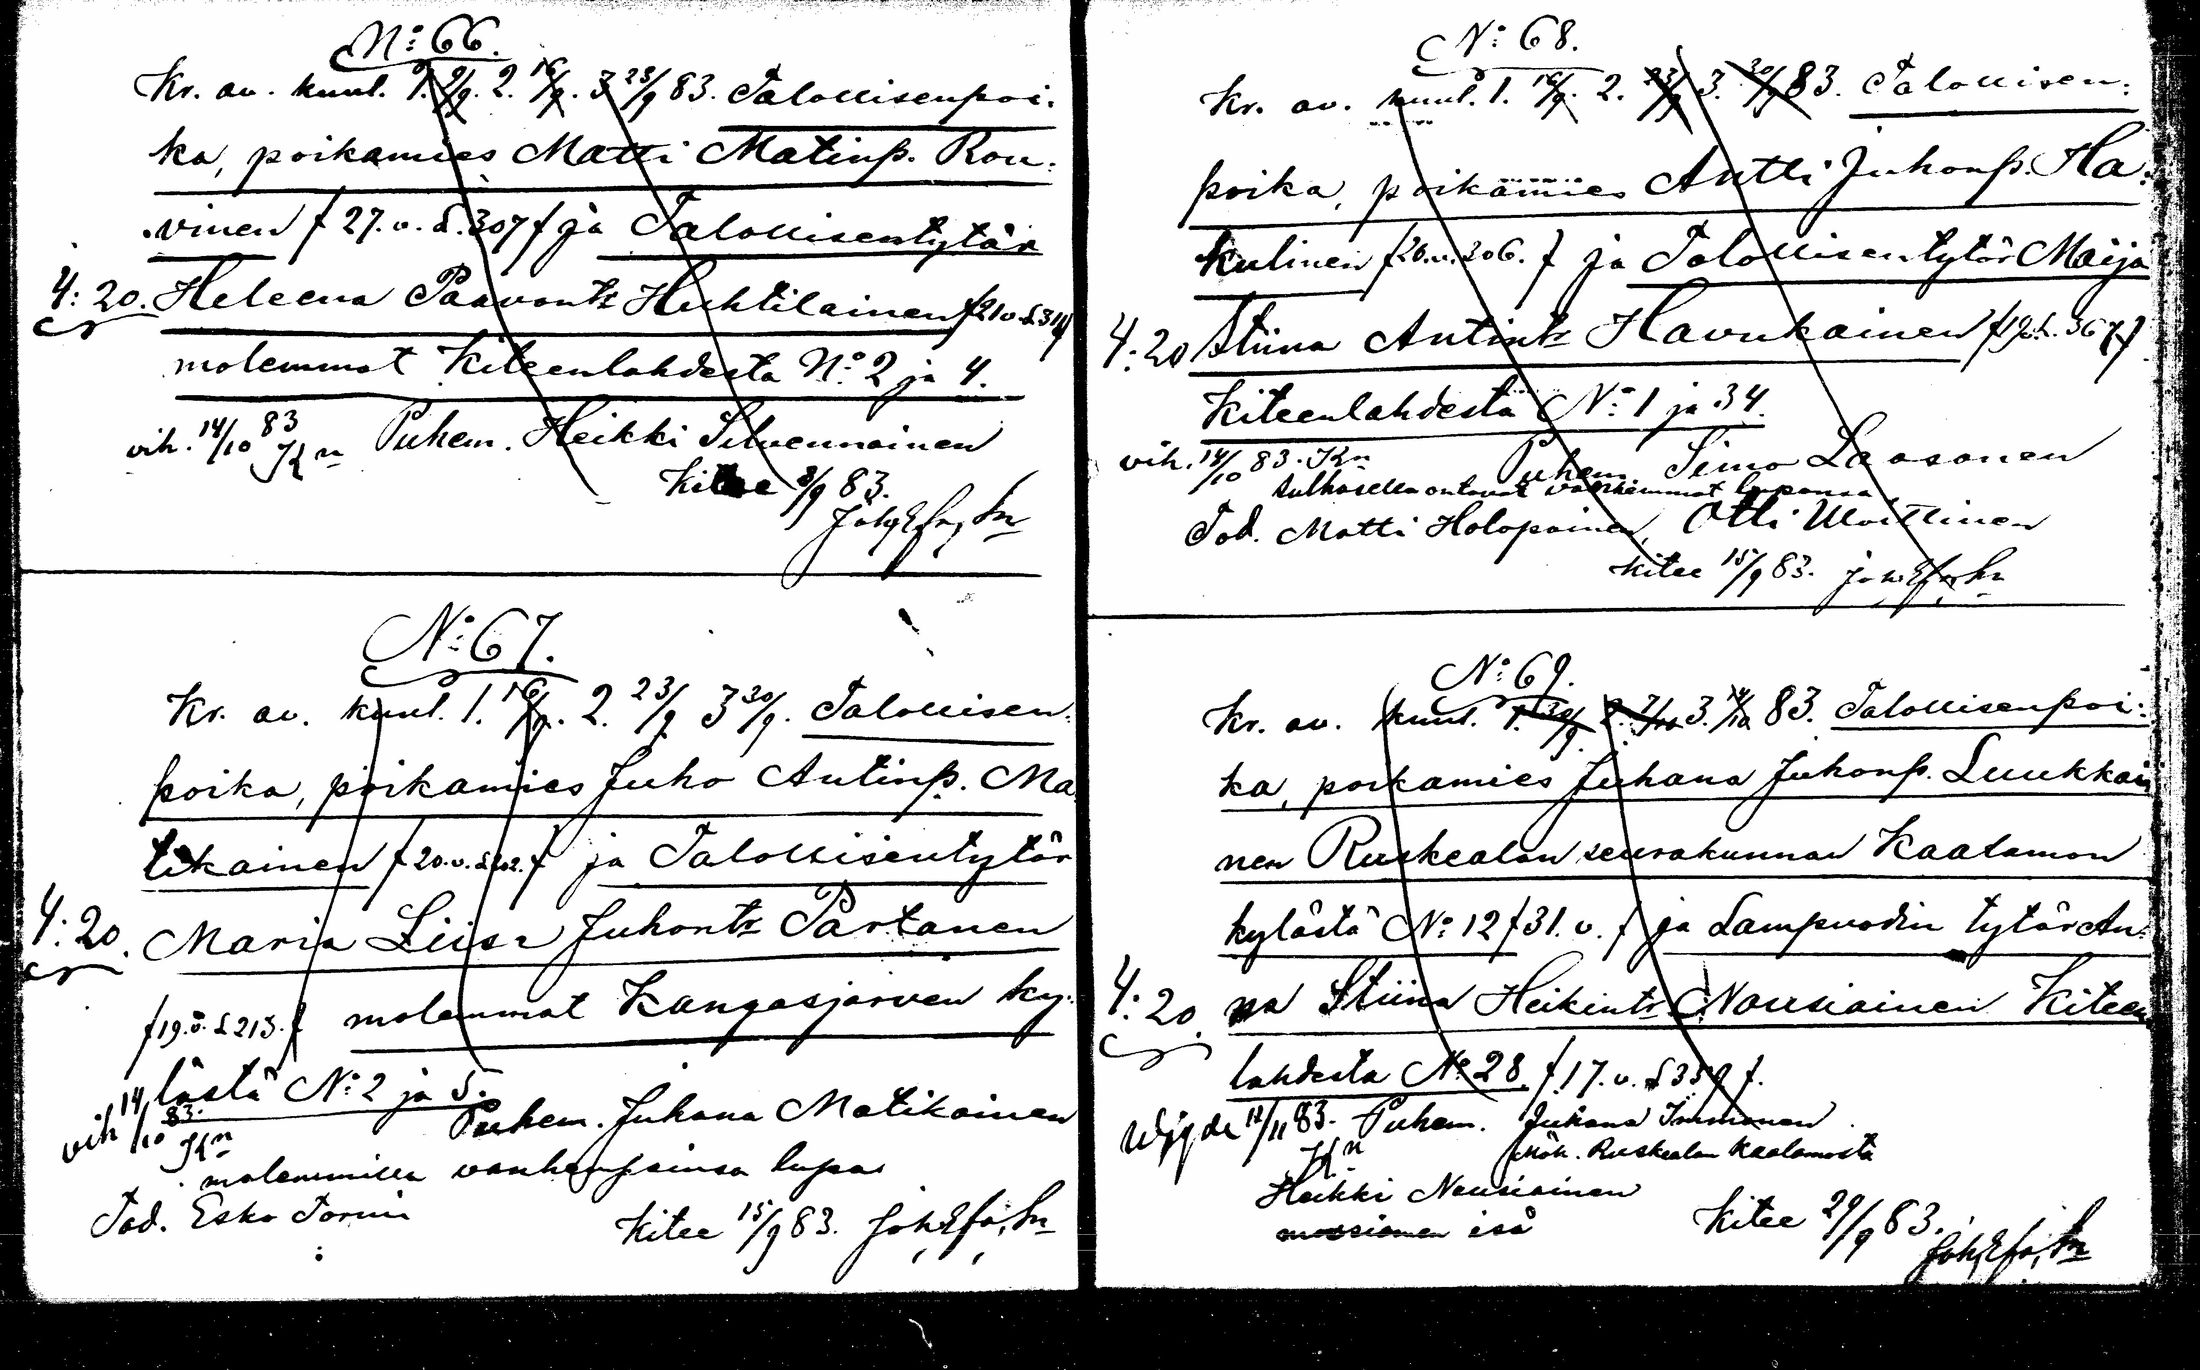 N:o 66.
Kr. av. kuul. 1. 9/9. 2. 16/9. 3 23/9 83. Talollisenpoi:
ka, poikamies Matti Matinp. Rou:
vinen f 27. v. S. 307 f ja Talollisentytär
4: 20. Heleena Paavontr Huhtilainen f 21 v. S 314 f
molemmat Kiteenlahdesta N:o 2 ja 4.
vih. 14/10 83 Puhem. Heikki Silvennoinen
Kitee 8/9 83.
N:o 67.
Kr. av. kuul. 1. 16/9. 2. 23/9 3 30/9. Talollisen:
poika, poikamies Juho Antinp. Ma
tikainen f 20. v. S 202. f ja Talollisentytär
4: 20. Maria Liisa Juhontr Partanen
f 19. v. S 213. f molemmat Kangasjärven ky:
lästä N:o 2 ja 5.
vih 14/10 83. Puhem. Juhana Matikainen
molemmilla vanhempainsa lupa
Tod. Esko Tornin
Kitee 15/9 83.
N:o 68.
Kr. av. kuul. 1. 16/9. 2. 23/9 3. 30/9 83. Talollisen:
poika, poikamies Antti Juhonp. Ha:
kulinen f 26. v. 206. f ja Talollisentytär Maija
4: 20 Stiina Antintr Havukainen f 19. S. 367 f
Kiteenlahdestä N:o 1 ja 34.
vih. 14/10 83. Puhem. Simo Laasonen
sulhasella antavat vanhemmat lupansa
Tod. Matti Holopainen, Otti
Kitee 15/9 83.
N:o 69.
Kr. av. kuul. 1. 30/9 2. 7/10 3. 14/10 83. Talollisenpoi:
ka, poikamies Juhana Juhonp. Luukkai
nen Ruskealan seurakunnan Kaatamon
kylästä N:o 12 f 31. v. f ja Lampuodin tytär An:
4: 20. na Stiina Heikintr Nousiainen Kiteen
lahdesta N:o 28. f 17. v. S 359 f.
Wigde 18/11 83. Puhem. Juhana Immonen
Mök. Ruskealan Kaatamosta
Heikki Nousiainen
morsiamen isä
Kitee 29/9 83.